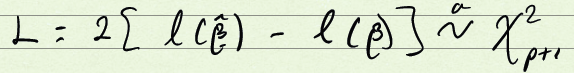 L = 2[ l(β̂) - l(β)] ~ᵃ χ²ₚ₊₁